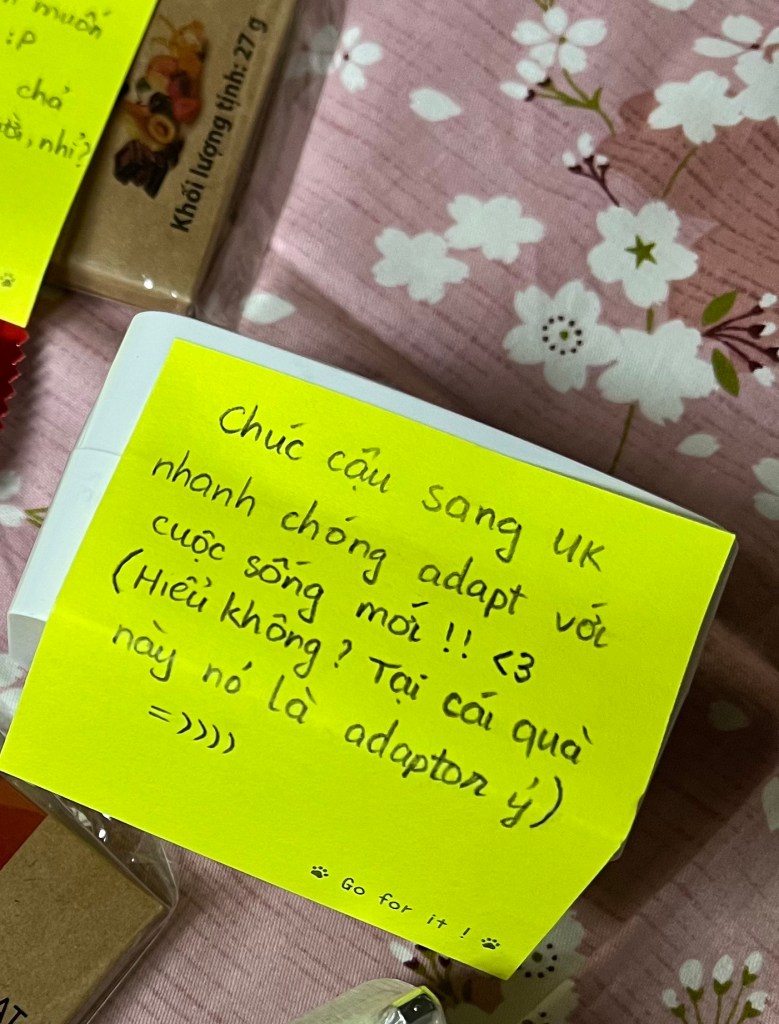 muốn
:P
chả
nhỉ?
Khối lượng tịnh: 27 g
Chúc cậu sang UK
nhanh chóng adapt với
cuộc sống mới !! <3
(Hiểu không? Tại cái quà
này nó là adaptor ý)
=))))
Go for it !